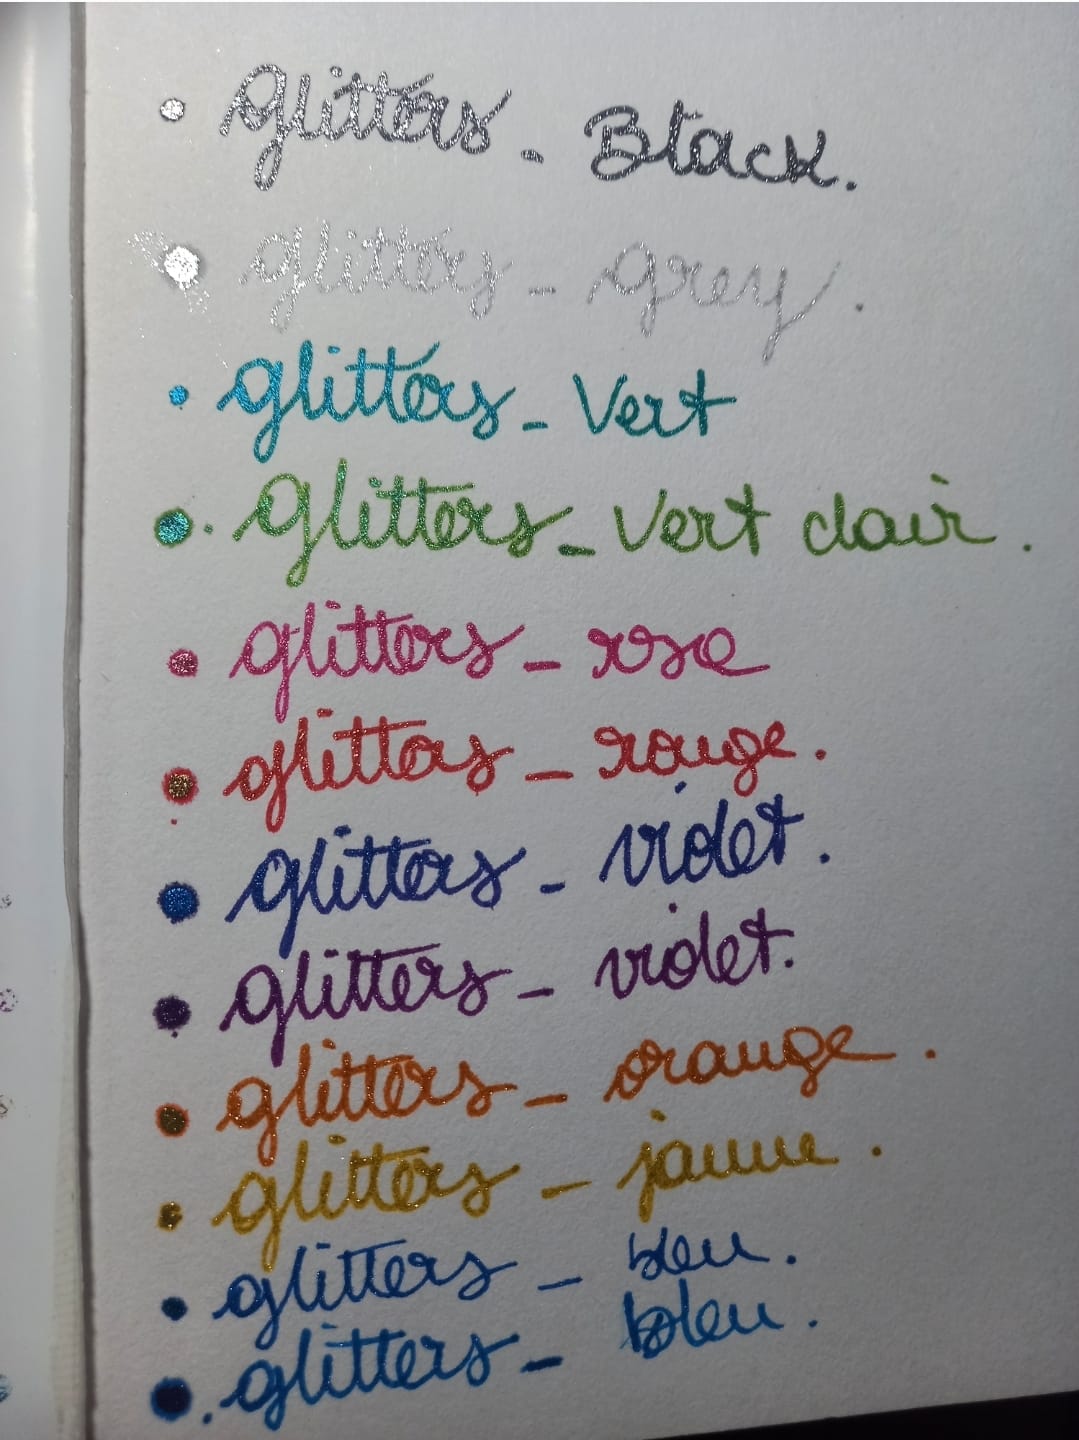 • glitters - Black.
• glitters - grey.
• glitters - Vert
• glitters - Vert clair.
• glitters - rose
• glitters - rouge.
• glitters - violet.
• glitters - violet.
• glitters - orange.
• glitters - jaune.
• glitters - bleu.
• glitters - bleu.